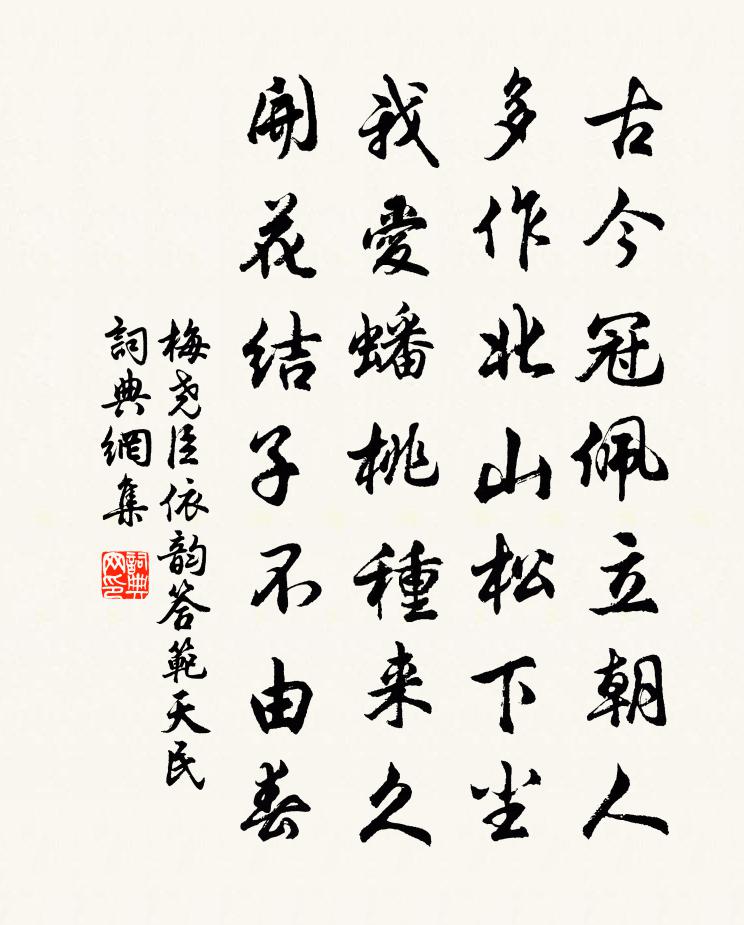 古今冠佩立朝人
多作北山松下尘
我愛蟠桃種来久
開花结子不由春
梅尧臣依韵答範天民
詞典網集
詞典网印